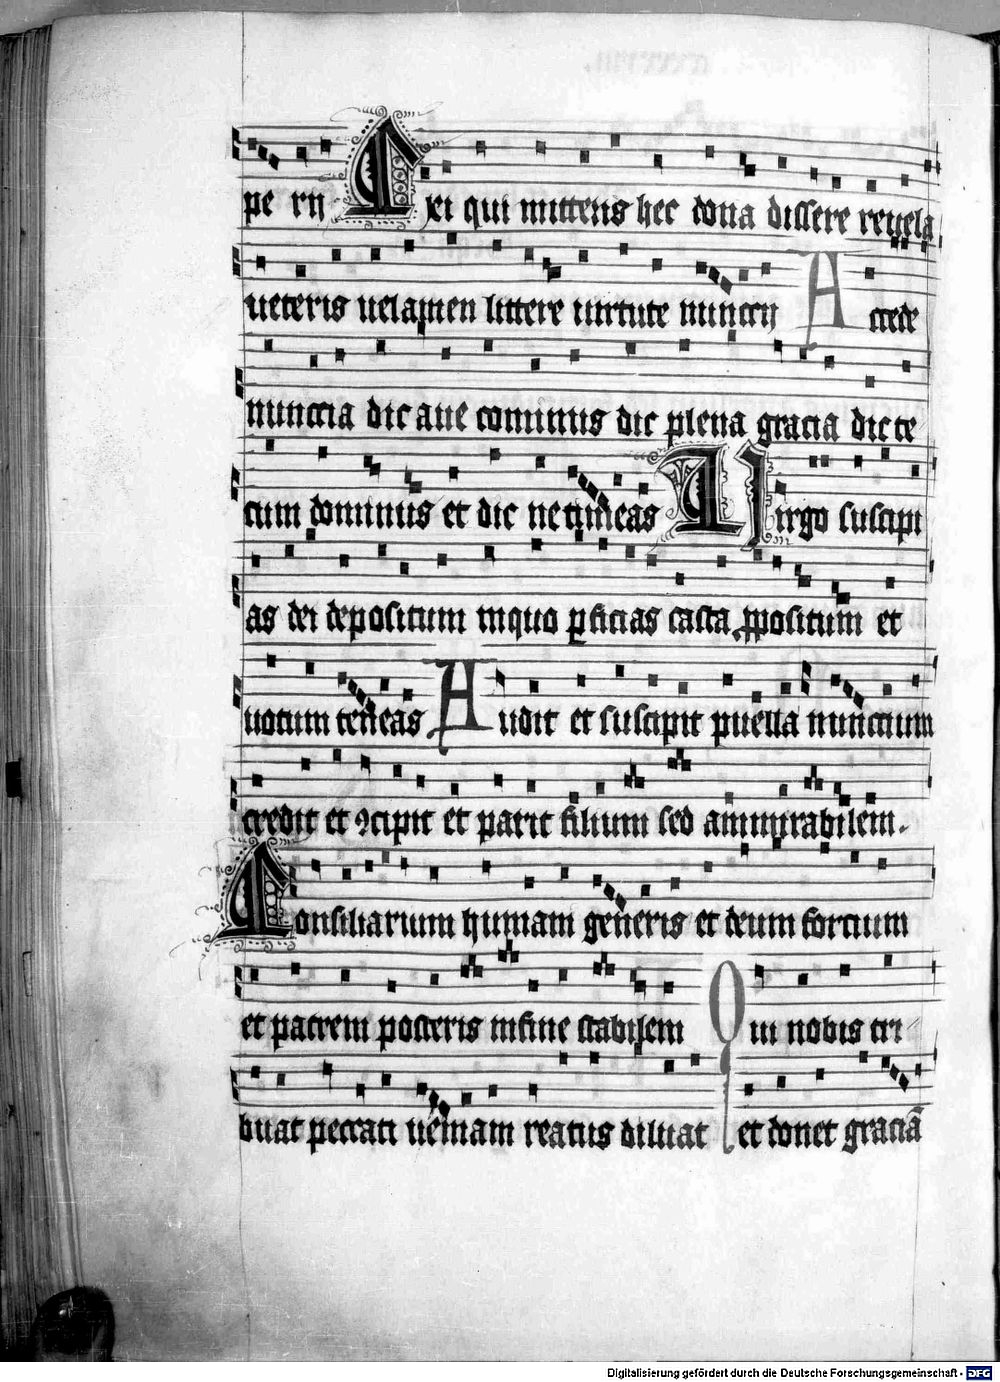 pe rij Exi qui mittens hec dona dissere reuela
ueteris uelamen littere uirtute nunccij Accede
nunccia dic aue cominus dic plena gracia dic te
cum dominus et dic ne timeas Uirgo suscipi
as dei depositum inquo ꝑficias casta ꝓpositum et
uotum teneas Audit et suscipit puella nunccium
credit et ꝯcipit et parit filium sed ammirabilem.
Consiliarium humani generis et deum forcium
et patrem posteris infine stabilem Qui nobis tri
buat peccati ueniam reatus diluat et donet graciā
Digitalisierung gefördert durch die Deutsche Forschungsgemeinschaft - DFG